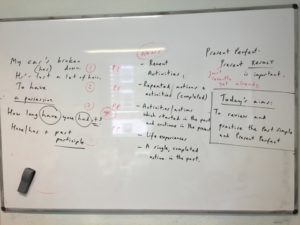 My car's broken
(has) down. (1)
He's lost a lot of hair.
To have (2)
= possession
(3)
How long have you had it?
Have/has + past
participle
PP
PP
PP
- Recent
Activities;
- Repeated, actions &
activities (completed)
- Activities/actions
which started in the past
and continue in the present
- Life experiences
- A single, completed
action in the past.
Present Perfect
Present RESULT
is important.
just
recently
yet already
Today's aims:
To review and
practise the Past simple
and Present Perfect